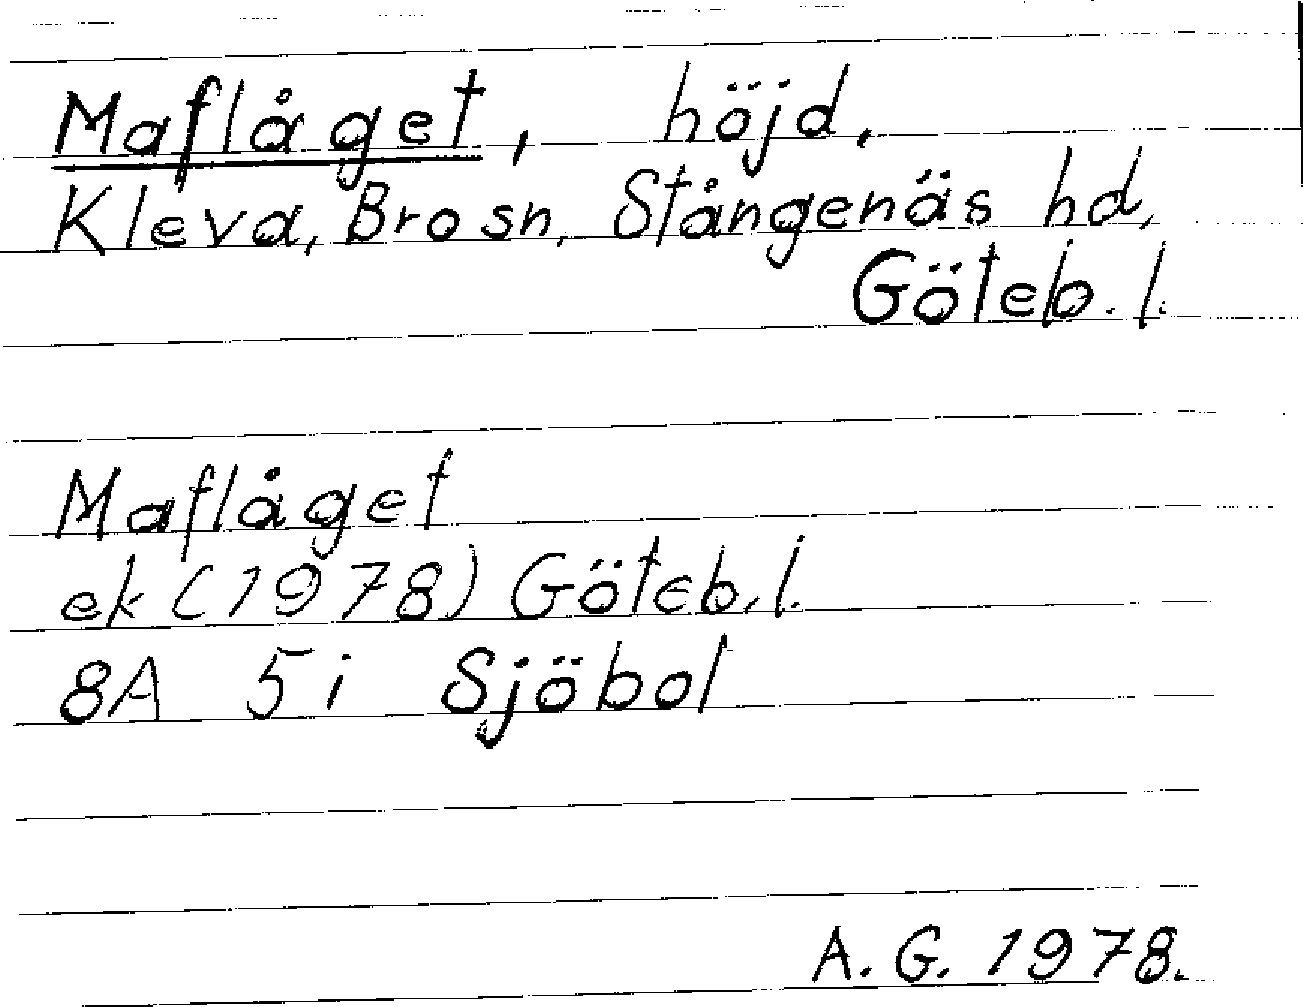 Maflåget, höjd,
Kleva, Bro sn, Stångenäs hd,
Göteb. l.
Maflåget
ek (1978) Göteb. l.
8A 5i Sjöbol
A. G. 1978.